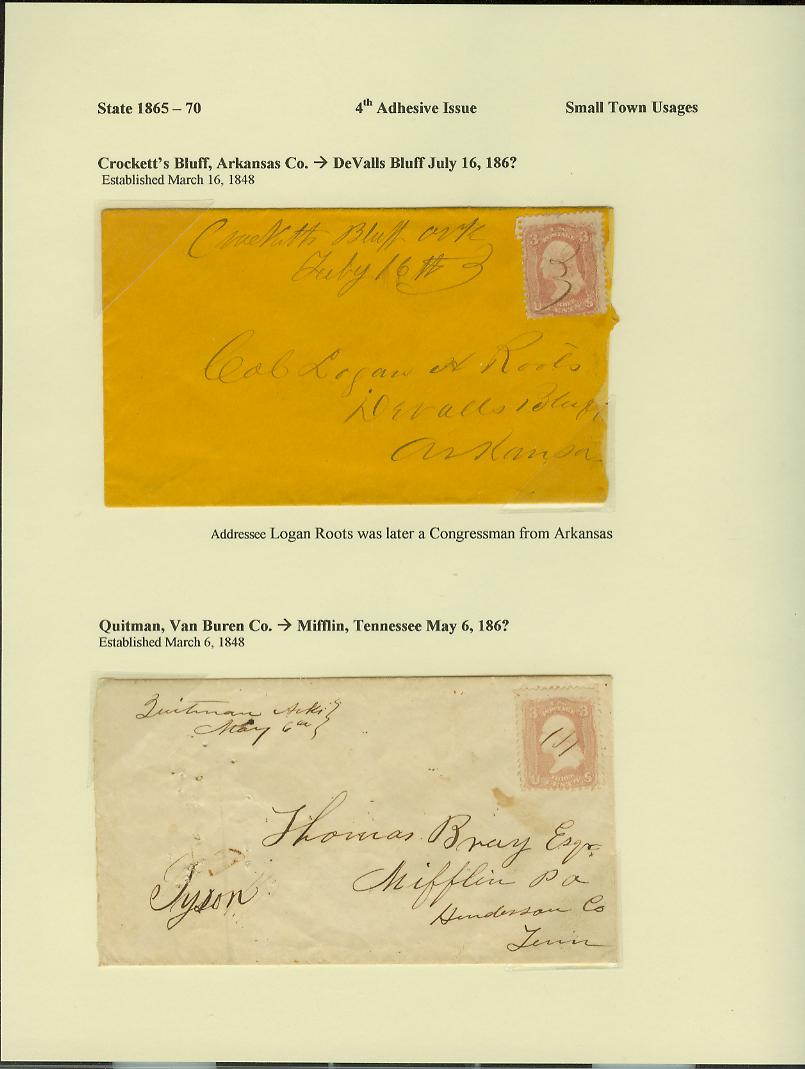 State 1865 – 70 4th Adhesive Issue Small Town Usages
Crockett's Bluff, Arkansas Co. → DeValls Bluff July 16, 186?
Established March 16, 1848
Crocketts Bluff Ark
July 16th
3 3
U.S. POSTAGE
3
U S
CENTS
Col Logan H Roots
DeValls Bluff
Arkansa
Addressee Logan Roots was later a Congressman from Arkansas
Quitman, Van Buren Co. → Mifflin, Tennessee May 6, 186?
Established March 6, 1848
Quitman Arks
May 6th
3 3
POSTAGE
U S
Thomas Bray Esqr.
Mifflin P O
Tyson
Henderson Co
Tenn